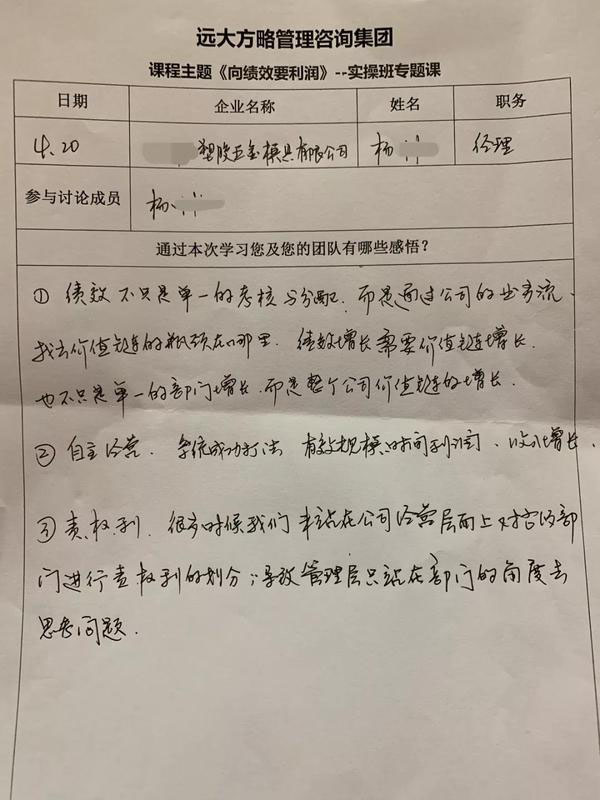 远大方略管理咨询集团
课程主题《向绩效要利润》--实操班专题课
日期 企业名称 姓名 职务
4.20 塑胶五金模具有限公司 杨 经理
参与讨论成员 杨
通过本次学习您及您的团队有哪些感悟？
① 绩效不只是单一的考核与分配.而是通过公司的业务流、
找出价值链的瓶颈在哪里.绩效增长需要价值链增长.
也不只是单一的部门增长.而是整个公司价值链的增长.
② 自主经营.系统成功打法 有效规模时间利润、收入增长.
③ 责权利.很多时候我们未站在公司经营层面上对各的部
门进行责权利的划分;导致管理层只站在部门的角度去
思考问题.